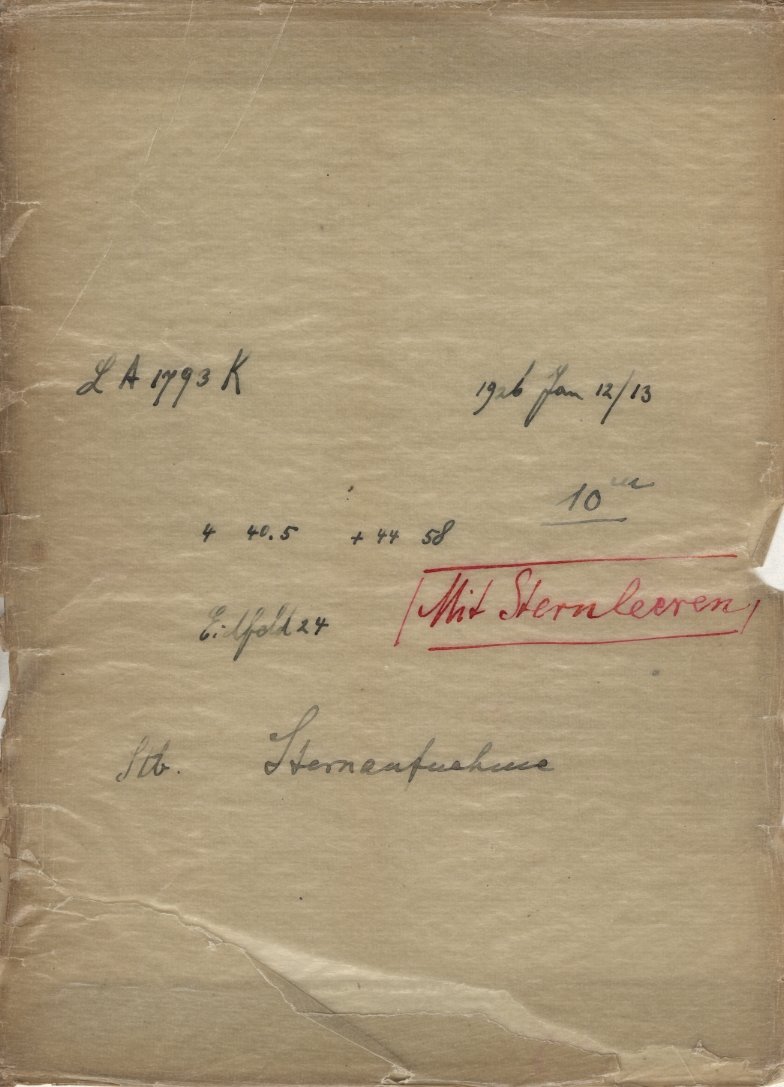 LA 1793 K 1926 Jan 12/13
10 m
4 40.5 + 44 58
Eichfeld 24
Mit Sternleeren
Stb. Sternaufnahme